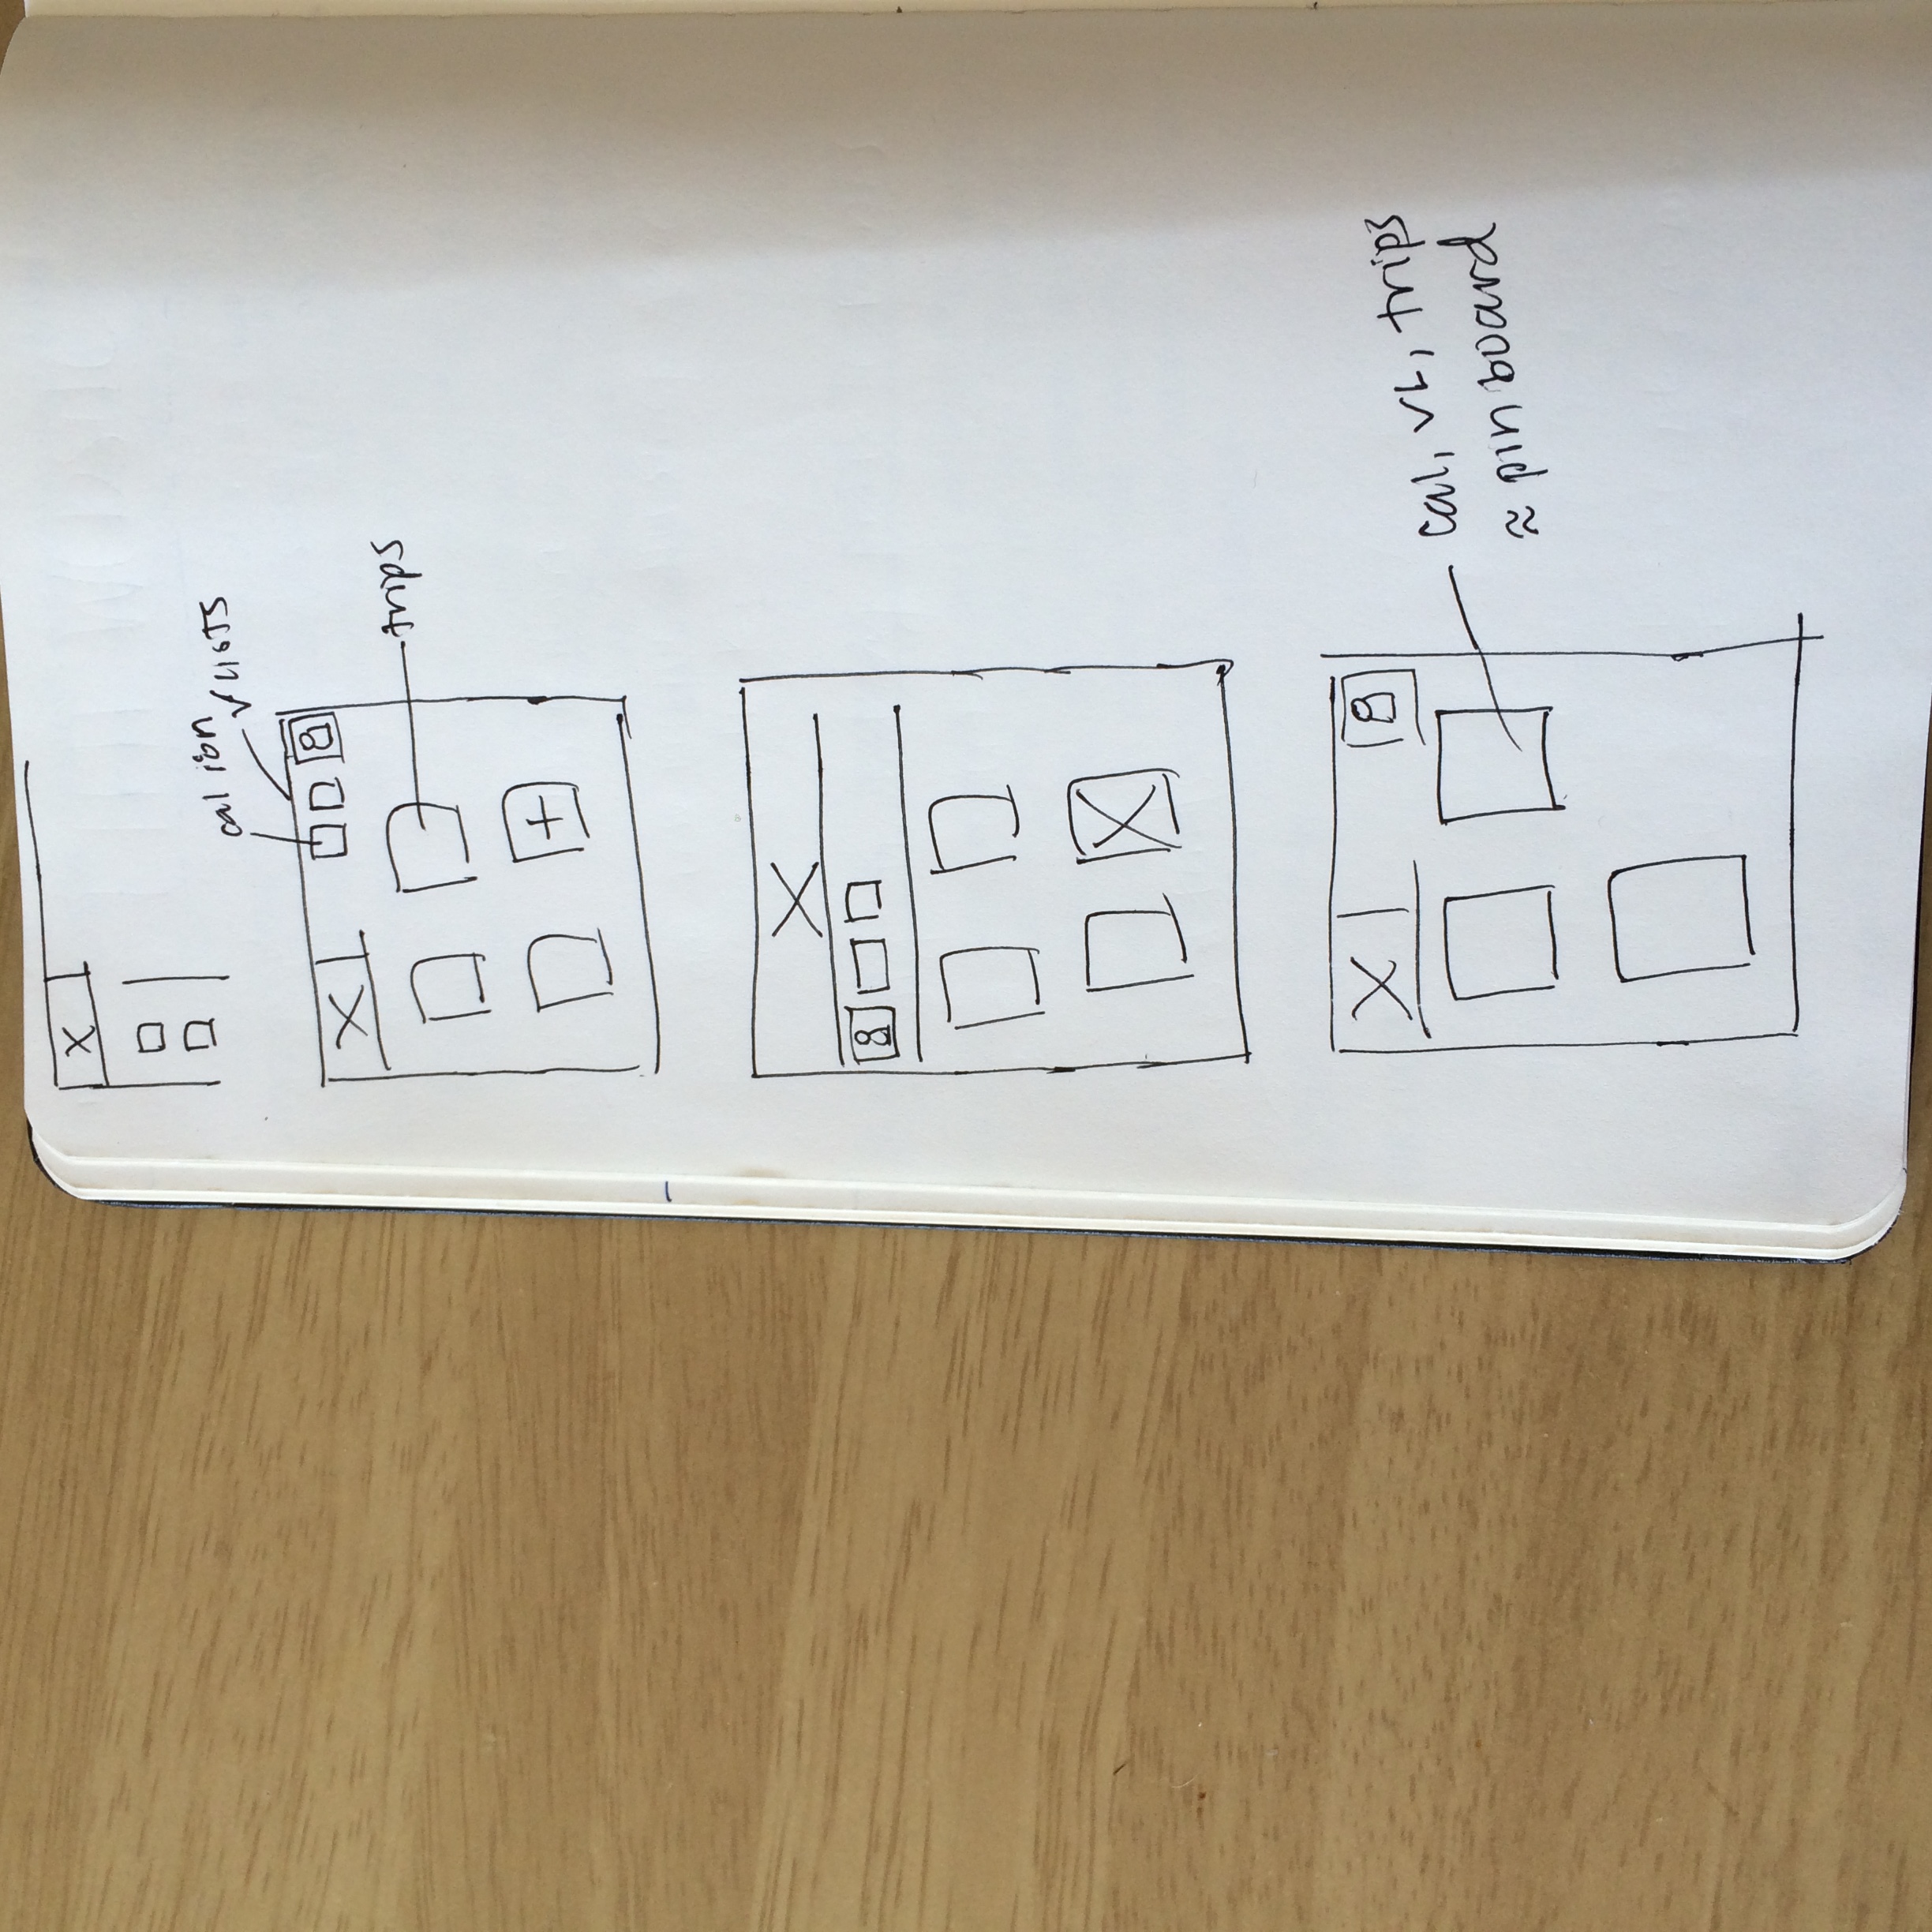 cal ion
✓ lists
trips
cal, VL, trips
≈ pin board